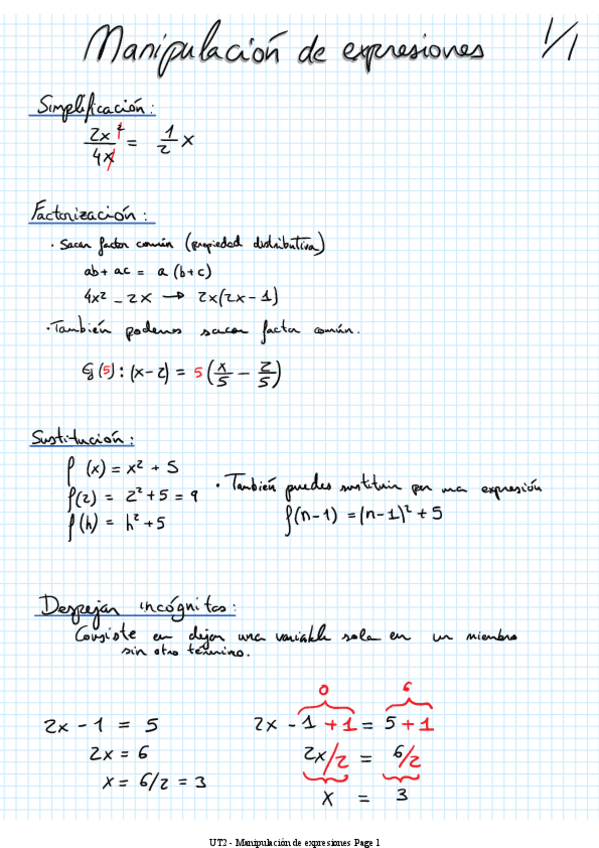 Manipulación de expresiones 1/1
Simplificación:
2x²/4x = 1/2 x
Factorización:
· Sacar factor común (propiedad distributiva)
ab + ac = a (b+c)
4x² - 2x → 2x(2x - 1)
· También podemos sacar factor común.
(5) : (x-2) = 5(x/5 - 2/5)
Sustitución:
f (x) = x² + 5
f(2) = 2² + 5 = 9
f(h) = h² + 5
· También puedes sustituir por una expresión
f(n-1) = (n-1)² + 5
Despejar incógnitas:
Consiste en dejar una variable sola en un miembro
sin otro término.
0 6
2x - 1 = 5
2x = 6
x = 6/2 = 3
2x - 1 + 1 = 5 + 1
2x/2 = 6/2
x = 3
UT2 - Manipulación de expresiones Page 1